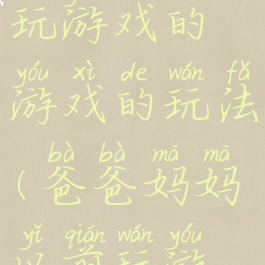 玩游戏的
yóu xì de wán fǎ
游戏的玩法
bà bà mā mā
(爸爸妈妈
yǐ qián wán yóu
以前玩游